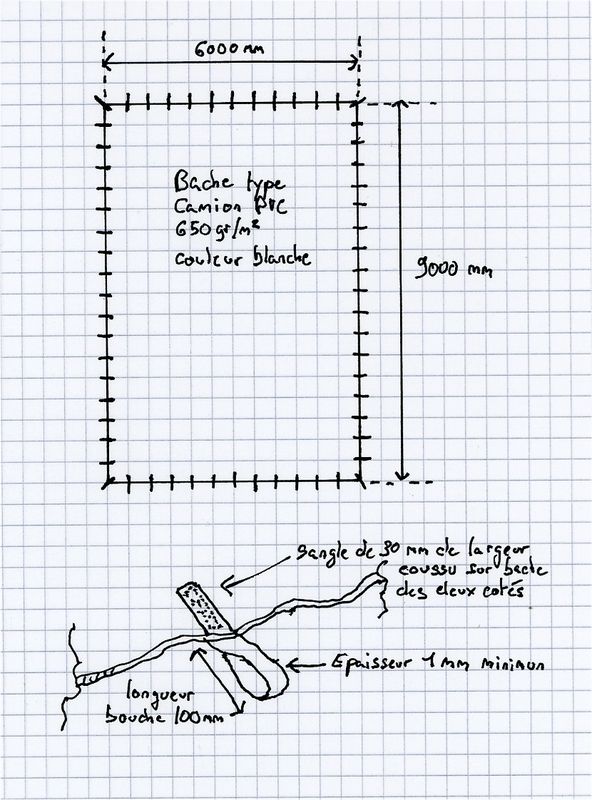 6000 mm
Bache type
Camion PVC
650 gr/m²
couleur blanche
9000 mm
Sangle de 30 mm de largeur
coussu sur bache
des deux cotés
Epaisseur 1 mm minimun
longueur
bouche 100 mm